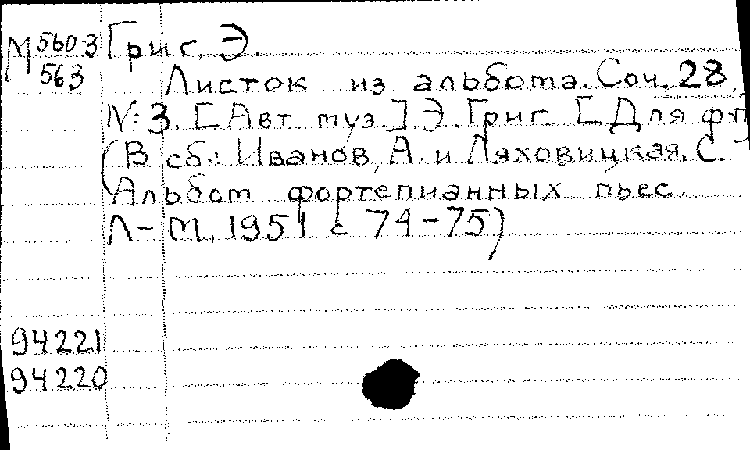 М 5603 Григ, Э.
563 Листок из альбома. Соч. 28,
№ 3. [Авт муз.] Э. Григ [Для ф-п
(В сб.: Иванов, А. и Ляховицкая, С.
Альбом фортепианных пьес.
Л-М, 1951 с 74-75)
94221
94220